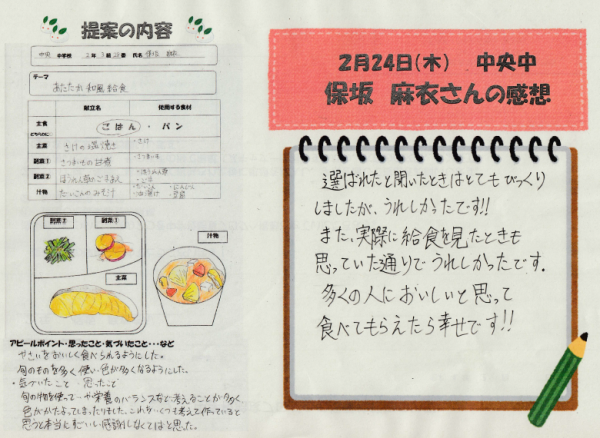 提案の内容
中央 中学校 2年 組 番 氏名 保坂 麻衣
テーマ
あたたか 和風給食
献立名 使用する食材
主食 ごはん ・ パン
主菜 さけの塩焼き ・さけ
副菜① さつまいもの甘煮 ・さつまいも
副菜② ほうれん草のごまあえ ・ほうれん草 ・ごま
汁物 だいこんのみそ汁
副菜② 副菜① 汁物
主菜
アピールポイント・思ったこと・気づいたこと・・・など
やさいをおいしく食べられるようにした。
旬のものを多く使い、色が多くなるようにした。
・気づいたこと 思ったこと
旬の物を使って、栄養のバランスなど考えることが多く、
色がかたよってしまったりしました。これをいつも考えて作っていると
思うと本当にすごいし感謝しなくてはと思った。
2月24日(木) 中央中
保坂 麻衣さんの感想
選ばれたと聞いたときはとてもびっくり
しましたが、うれしかったです!!
また、実際に給食を見たときも
思っていた通りでうれしかったです。
多くの人においしいと思って
食べてもらえたら幸せです!!